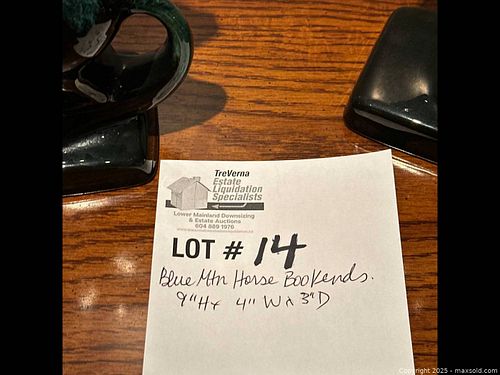 TreVerna
Estate
Liquidation
Specialists
Lower Mainland Downsizing
& Estate Auctions
604 889 1976
LOT # 14
Blue Mtn Horse Bookends.
9"H x 4" W x 3"D
Copyright 2025 - maxsold.com